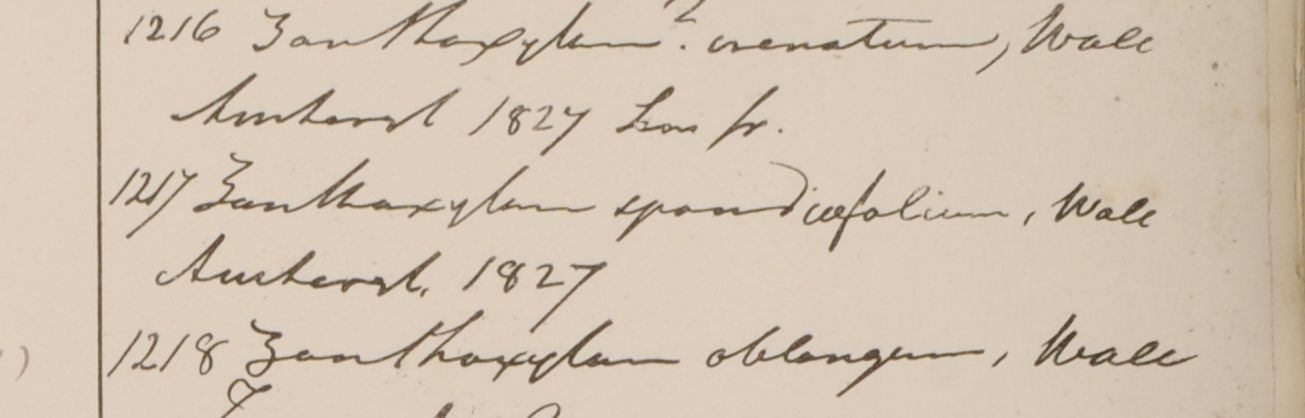 1216 Zanthoxylum? crenatum, Wall
Amherst 1827 fr.
1217 Zanthoxylum spondiaefolium, Wall
Amherst, 1827
1218 Zanthoxylum oblongum, Wall